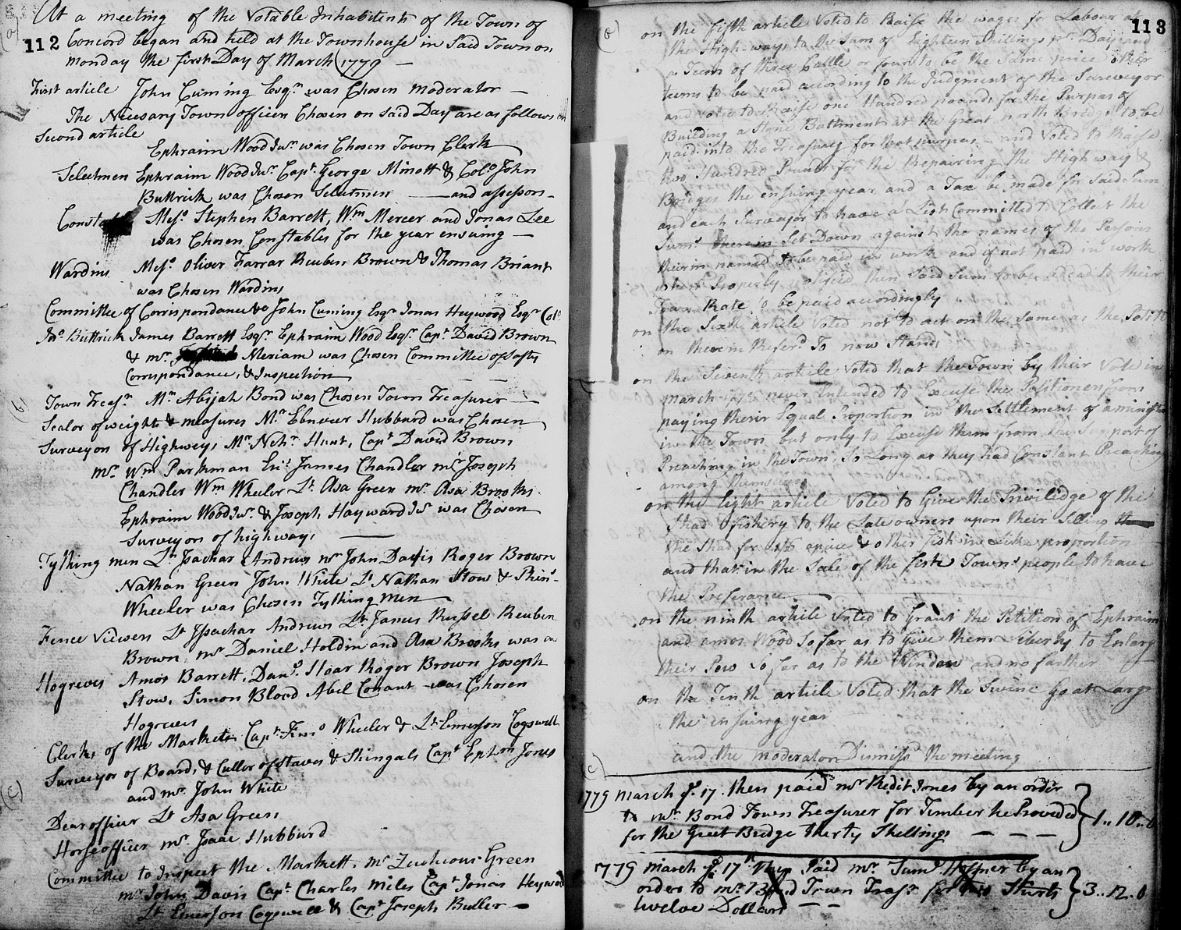 At a meeting of the Votable Inhabitents of the Town of
112 Concord began and held at the Townhouse in Said Town on
monday the first Day of March 1779 —
First article John Cuming Esqr was Chosen moderator —
The Necesary Town officers Chosen on Said Day are as follows
Second article
Ephraim Wood Junr was Chosen Town Clerk
Selectmen Ephraim Wood Junr Capt George Minott & Colo John
Buttrick was Chosen Selectmen — and assessors
Messrs Stephen Barrett, Wm Mercer and Jonas Lee
was Chosen Constables for the year ensuing —
Wardins Messrs Oliver Farrar Reuben Brown & Thomas Briant
was Chosen Wardins
Committee of Correspondance &c John Cuming Esqr Jonas Heywood Esqr Colo
Jno Buttrick James Barrett Esqr Ephraim Wood Esqr Capt David Brown
& mr Meriam was Chosen Committee of Safty
Correspondance, & Inspection
Town Treasr Mr Abijah Bond was Chosen Town Treasurer —
Sealor of weight & measures Mr Ebenezer Hubbard was Chosen
Surveyors of Highways Mr Nehh Hunt, Capt David Brown
mr Wm Parkman Ens James Chandler mr Joseph
Chandler Wm Wheeler Lt Asa Green mr Asa Brooks
Ephraim Wood Jur & Joseph Hayward Jur was Chosen
Surveyors of highways —
Tything men Lt Issachar Andrews mr John Davis Roger Brown
Nathan Green John White Lt Nathan Stow &
Wheeler was Chosen Tything men —
Fence Viewers Lt Issachar Andrews Lt James Russel Reuben
Brown, mr Daniel Holdin and Asa Brooks was
Hogreves Amos Barrett, Danl Hoar Roger Brown Joseph
Stow, Simon Blood Abel Conant was Chosen
Hogreves
Clerks of the Market Capt Wheeler & Lt Emerson Cogswell
Surveyor of Boards & Culler of Staves & Shingals Capt Jones
and mr John White
Dear officer Lt Asa Green
Horse officer mr Isaac Hubburd
Committee to Inspect the Markett, mr Green
mr John Davis Capt Charles Miles Capt Jonas Heywood
Lt Emerson Cogswell & Capt Joseph Butler —
113
on the fifth article Voted to Raise the wages for Labour
the High ways to the Sum of Eighteen Shillings pr Day and
a Team of three Cattle or four to be the Same price other
teems to be paid according to the Judgment of the Surveyor
and voted to Raise one Hundred pounds for the Purpas of
Building a Stone Battment at the great north bridge to be
paid into the Treasury for that purpose — and Voted to Raise
two Hundred Pounds for the Repairing the High ways &
Bridges the ensuing year and a Tax be made for Said Sum
and each Surveyor to have a List Committed to Collect the
Sums Set Down against the names of the Persons
therin named to be paid in work and if not paid in work
then Said Sum to be added to their
Rate to be paid accordingly
on the Sixth article Voted not to act on the Same as the
on therein Referd To now Stands
on the Seventh article Voted that the Town by their Vote in
march never Intended to Excuse the Petitioners from
paying their Equal Proportion in the Settlement of a minister
in the Town, but only to Excuse them from the Support of
Preaching in the Town So Long as they had Constant Preaching
among themselves
on the Eight article Voted to Give the Priviledge of the
Shad fishery to the Late owners upon their Selling
the Shad for & other fish in Like proportion
and that in the Sale of the fish Towns people to have
the Preferance —
on the ninth article Voted to Grant the Petition of Ephraim
and amos Wood So far as to Give them Liberty to Enlarg
their Pew So far as to the Window and no farther
on the Tenth article Voted that the Swine go at Large
the ensuing year
and the moderator Dismissd the meeting
1779 march ye 17. then paid mr Redit Jones by an order
to mr Bond Town Treasurer for Timber he Provided
for the Great Bridge thirty Shillings — — — 1..10..0
1779 march ye 17th Then Paid mr by an
orders to mr Bond Town Treasr for
twelve Dollars — — 3..12..0